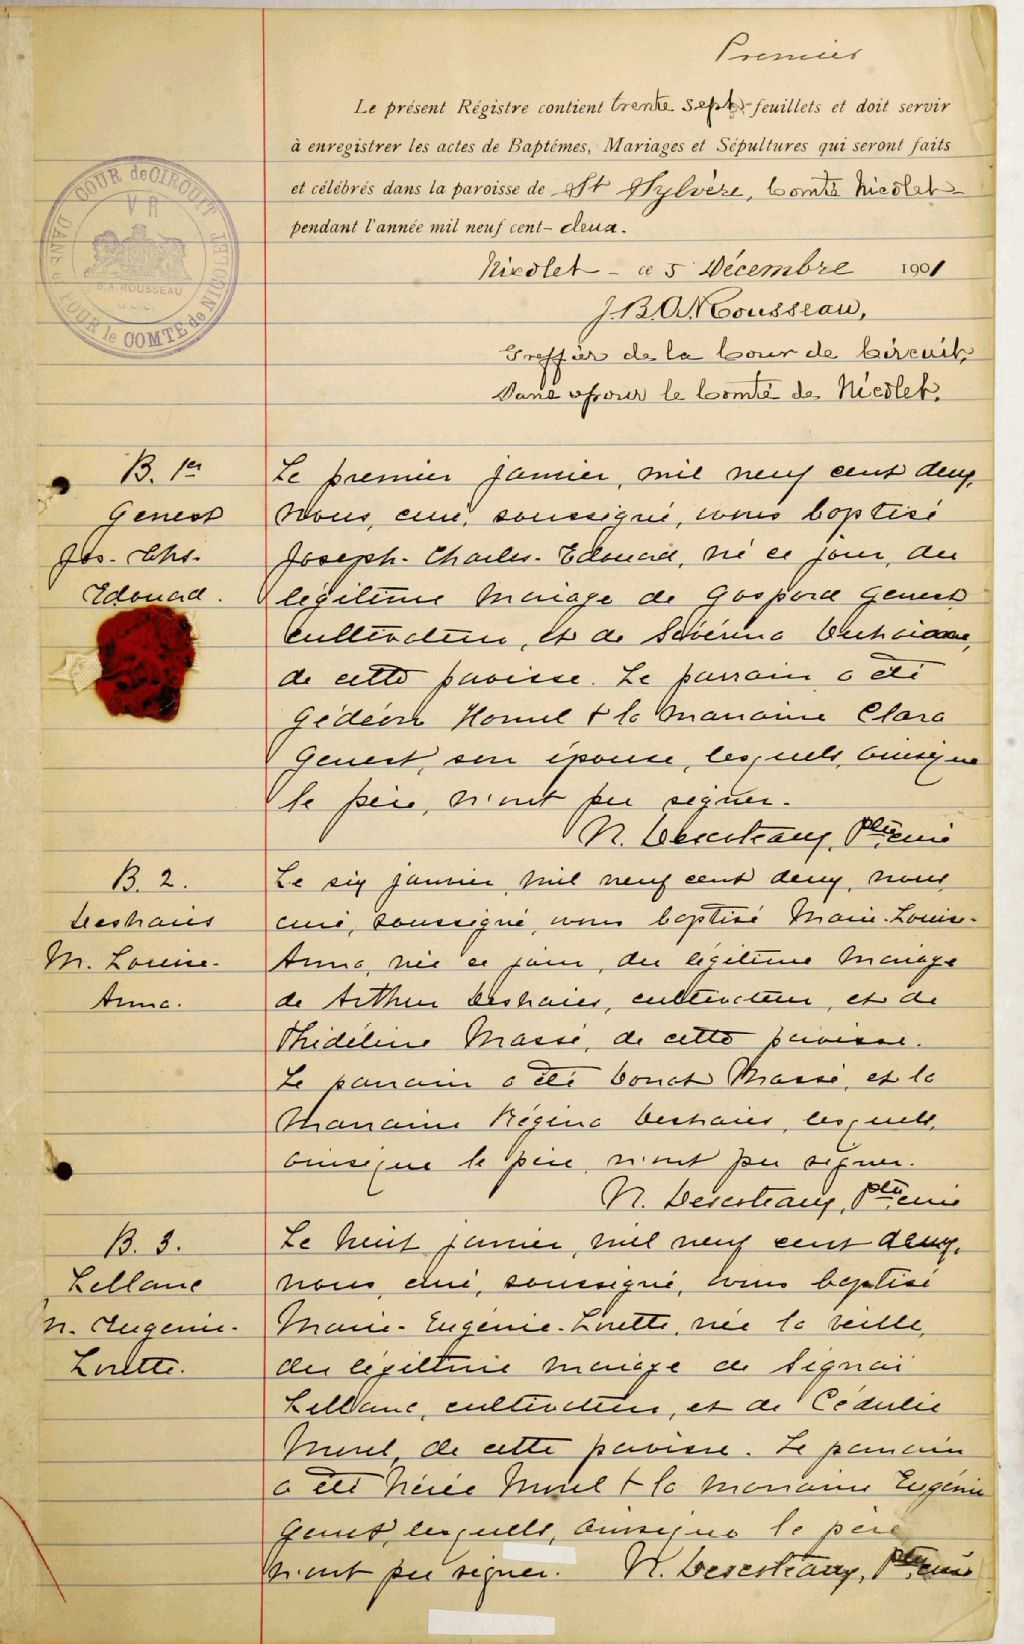 Premier
Le présent Régistre contient trente sept feuillets et doit servir
à enregistrer les actes de Baptêmes, Mariages et Sépultures qui seront faits
et célébrés dans la paroisse de St Sylvère, Comté Nicolet
pendant l'année mil neuf cent- deux.
Nicolet - ce 5 Décembre 1901
J.B.A. Rousseau,
Greffier de la Cour de Circuit,
Dans & pour le Comté de Nicolet.
COUR de CIRCUIT
DANS & POUR le COMTE de NICOLET
V R
J.B.A. ROUSSEAU
G.C.C.
B. 1er
Genest
Jos- Chs-
Edouard.
Le premier janvier, mil neuf cent deux,
nous, curé, soussigné, avons baptisé
Joseph- Charles- Edouard, né ce jour, du
légitime mariage de Gaspard Genest
cultivateur, et de Sévérina
de cette paroisse. Le parrain a été
Gédéon Hamel & la marraine Clara
Genest, son épouse, lesquels, ainsique
le père, n'ont pu signer.
N. Descoteaux, Ptre, curé
B. 2.
Deshaies
M. Louise-
Anna.
Le six janvier, mil neuf cent deux, nous,
curé, soussigné, avons baptisé Marie-Louise-
Anna, née ce jour, du légitime mariage
de Arthur Deshaies, cultivateur, et de
Phidéline Massé, de cette paroisse.
Le parrain a été Donat Massé, et la
marraine Régina Deshaies, lesquels,
ainsique le père, n'ont pu signer.
N. Descoteaux, Ptre, curé
B. 3.
LeBlanc
M. Eugénie-
Lorette.
Le huit janvier, mil neuf cent deux,
nous, curé, soussigné, avons baptisé
Marie- Eugénie-Lorette, née la veille,
du légitime mariage de Signaï
LeBlanc, cultivateur, et de Cédulie
Morel, de cette paroisse. Le parrain
a été Nérée Morel & la marraine Eugénie
Genest, lesquels, ainsique le père
n'ont pu signer. N. Descoteaux, Ptre, curé